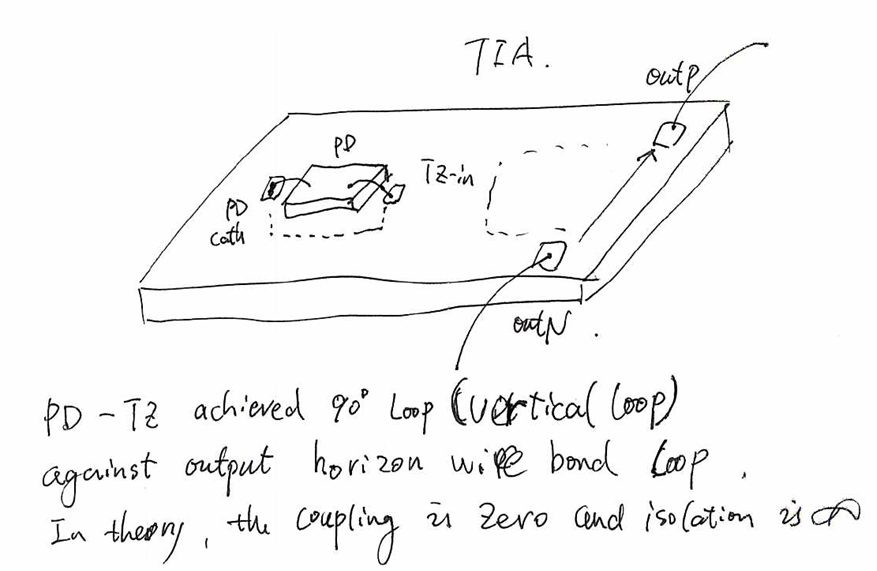 TIA.
outP
PD
TZ-in
PD
cath
outN.
PD - TZ achieved 90° Loop (vertical loop)
against output horizon wire bond loop.
In theory, the coupling is zero and isolation is ∞